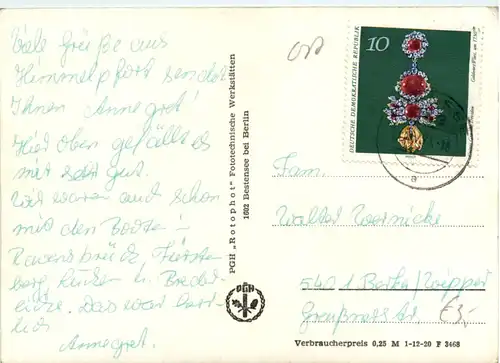 Viele Grüße aus
Himmelpfort sendet
Ihnen Annegret!
Hier oben gefällt es
mir sehr gut.
Wir waren auch schon
mit den Booten
Ravensbrück, Fürsten
berg, u.
Das war herr-
lich
Annegret.
PGH „Rotophot" Fototechnische Werkstätten
1602 Bestensee bei Berlin
PGH
10
DEUTSCHE DEMOKRATISCHE REPUBLIK
Fam.
Walter Wernicke
5401 Berka/Wipper
Greußener Str.
€3,-
Verbraucherpreis 0,25 M 1-12-20 F 3468